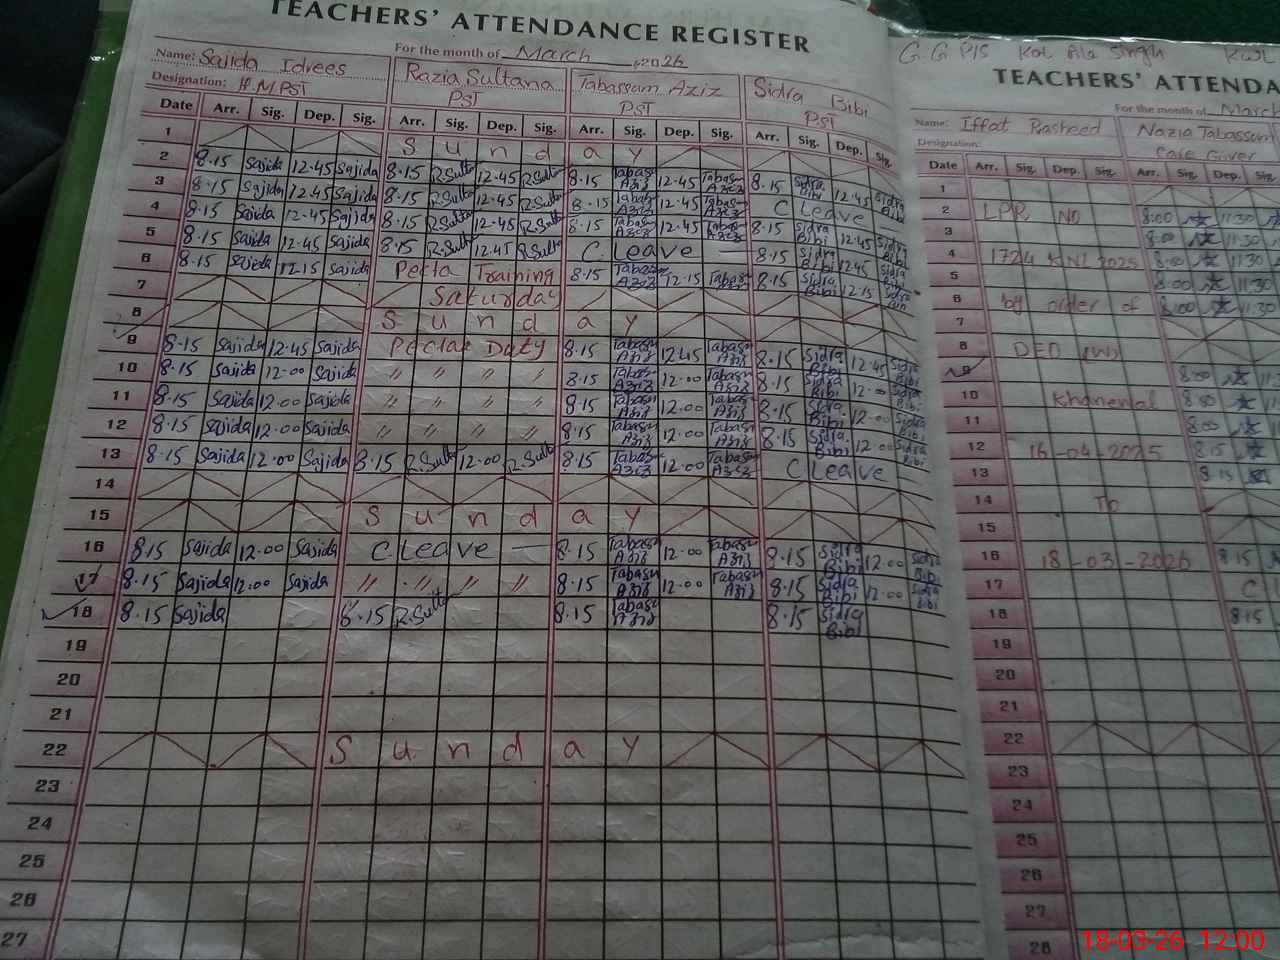 TEACHERS' ATTENDANCE REGISTER
For the month of March 2026
Name: Sajida Idrees Razia Sultana Tabassum Aziz Sidra Bibi
Designation: H.M.PST PST PST PST
Date Arr. Sig. Dep. Sig. Arr. Sig. Dep. Sig. Arr. Sig. Dep. Sig. Arr. Sig. Dep. Sig.
1 S u n d a y
2 8.15 Sajida 12.45 Sajida 8.15 R.Sulta 12.45 R.Sulta 8.15 Tabasum Aziz 12.45 Tabasum Aziz 8.15 Sidra Bibi 12.45 Sidra Bibi
3 8.15 Sajida 12.45 Sajida 8.15 R.Sulta 12.45 R.Sulta 8.15 Tabasum Aziz 12.45 Tabasum Aziz C Leave
4 8.15 Sajida 12.45 Sajida 8.15 R.Sulta 12.45 R.Sulta 8.15 Tabasum Aziz 12.45 Tabasum Aziz 8.15 Sidra Bibi 12.45 Sidra Bibi
5 8.15 Sajida 12.45 Sajida 8.15 R.Sulta 12.45 R.Sulta C Leave 8.15 Sidra Bibi 12.45 Sidra Bibi
6 8.15 Sajida 12.15 Sajida Pecta Training 8.15 Tabasum Aziz 12.15 Tabasum Aziz 8.15 Sidra Bibi 12.15 Sidra Bibi
7 Saturday
8 S u n d a y
9 8.15 Sajida 12.45 Sajida Pectaa Duty 8.15 Tabasum Aziz 12.45 Tabasum Aziz 8.15 Sidra Bibi 12.45 Sidra Bibi
10 8.15 Sajida 12.00 Sajida " " " " 8.15 Tabasum Aziz 12.00 Tabasum Aziz 8.15 Sidra Bibi 12.00 Sidra Bibi
11 8.15 Sajida 12.00 Sajida " " " " 8.15 Tabasum Aziz 12.00 Tabasum Aziz 8.15 Sidra Bibi 12.00 Sidra Bibi
12 8.15 Sajida 12.00 Sajida " " " " 8.15 Tabasum Aziz 12.00 Tabasum Aziz 8.15 Sidra Bibi 12.00 Sidra Bibi
13 8.15 Sajida 12.00 Sajida 8.15 R.Sulta 12.00 R.Sulta 8.15 Tabasum Aziz 12.00 Tabasum Aziz C Leave
14
15 S u n d a y
16 8.15 Sajida 12.00 Sajida C Leave 8.15 Tabasum Aziz 12.00 Tabasum Aziz 8.15 Sidra Bibi 12.00 Sidra Bibi
17 8.15 Sajida 12.00 Sajida " " " " 8.15 Tabasum Aziz 12.00 Tabasum Aziz 8.15 Sidra Bibi 12.00 Sidra Bibi
18 8.15 Sajida 8.15 R.Sulta 8.15 Tabasum Aziz 8.15 Sidra Bibi
19
20
21
22 S u n d a y
23
24
25
26
27
G.G P/S Kot Ala Singh KWL
TEACHERS' ATTENDA
For the month of March
Name: Iffat Rasheed Nazia Tabassum
Designation: Care Giver
Date Arr. Sig. Dep. Sig. Arr. Sig. Dep.
1
2 LPR NO 8:00 11:30
3 8:00 11:30
4 1724 KNL 2025 8:00 11:30
5 8:00 11:30
6 by order of 8:00 11:30
7
8 DEO (W)
9 8:00
10 Khanewal 8:00
11 8:00
12 16-04-2025 8.15
13 8.15
14 To
15
16 18-03-2026 8.15
17 C
18 8.15
19
20
21
22
23
24
25
26
27
28
18-03-26 12:00